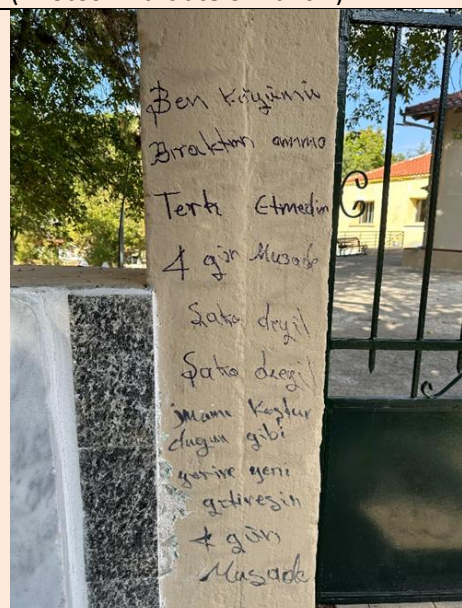 Ben Köyümü
Bıraktım amma
Terk Etmedim
4 gün Musade
Şaka deyil
Şaka deyil
imamı Koştur
dugun gibi
yerine yeni
getiresin
4 gün
Musade